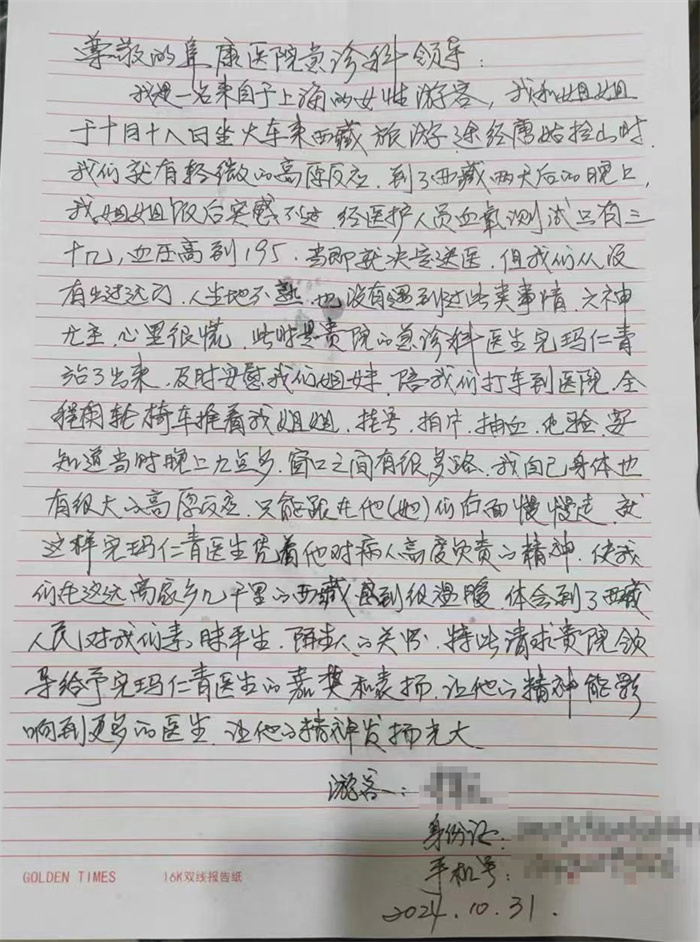 尊敬的阜康医院贵诊科领导:
我是一名来自于上海的女性游客,我和姐姐
于十月十八日坐火车来西藏旅游.途经唐姑拉山时.
我们就有轻微的高原反应.到了西藏两天后的晚上,
我姐姐饭后突感不适.经医护人员血氧测试只有三
十几,血压高到195.当即就决定送医.但我们从没
有出过远门.人生地不熟.也没有遇到过此类事情.六神
无主.心里很慌.此时是贵院的急诊科医生完玛仁青
站了出来.及时安慰我们姐妹.陪我们打车到医院.全
程用轮椅车推着我姐姐.挂号.拍片.抽血.化验.要
知道当时晚上九点多.窗口之间有很多路.我自己身体也
有很大的高原反应.只能跟在他(她)们后面慢慢走.就
这样完玛仁青医生凭着他对病人高度负责的精神.使我
们在这远离家乡几千里的西藏感到很温暖.体会到了西藏
人民对我们素昧平生.陌生人的关怀.特此请求贵院领
导给予完玛仁青医生的嘉奖和表扬.让他的精神能影
响到更多的医生.让他的精神发扬光大
游客:
身份证:
手机号:
2024.10.31.
GOLDEN TIMES 16K双线报告纸